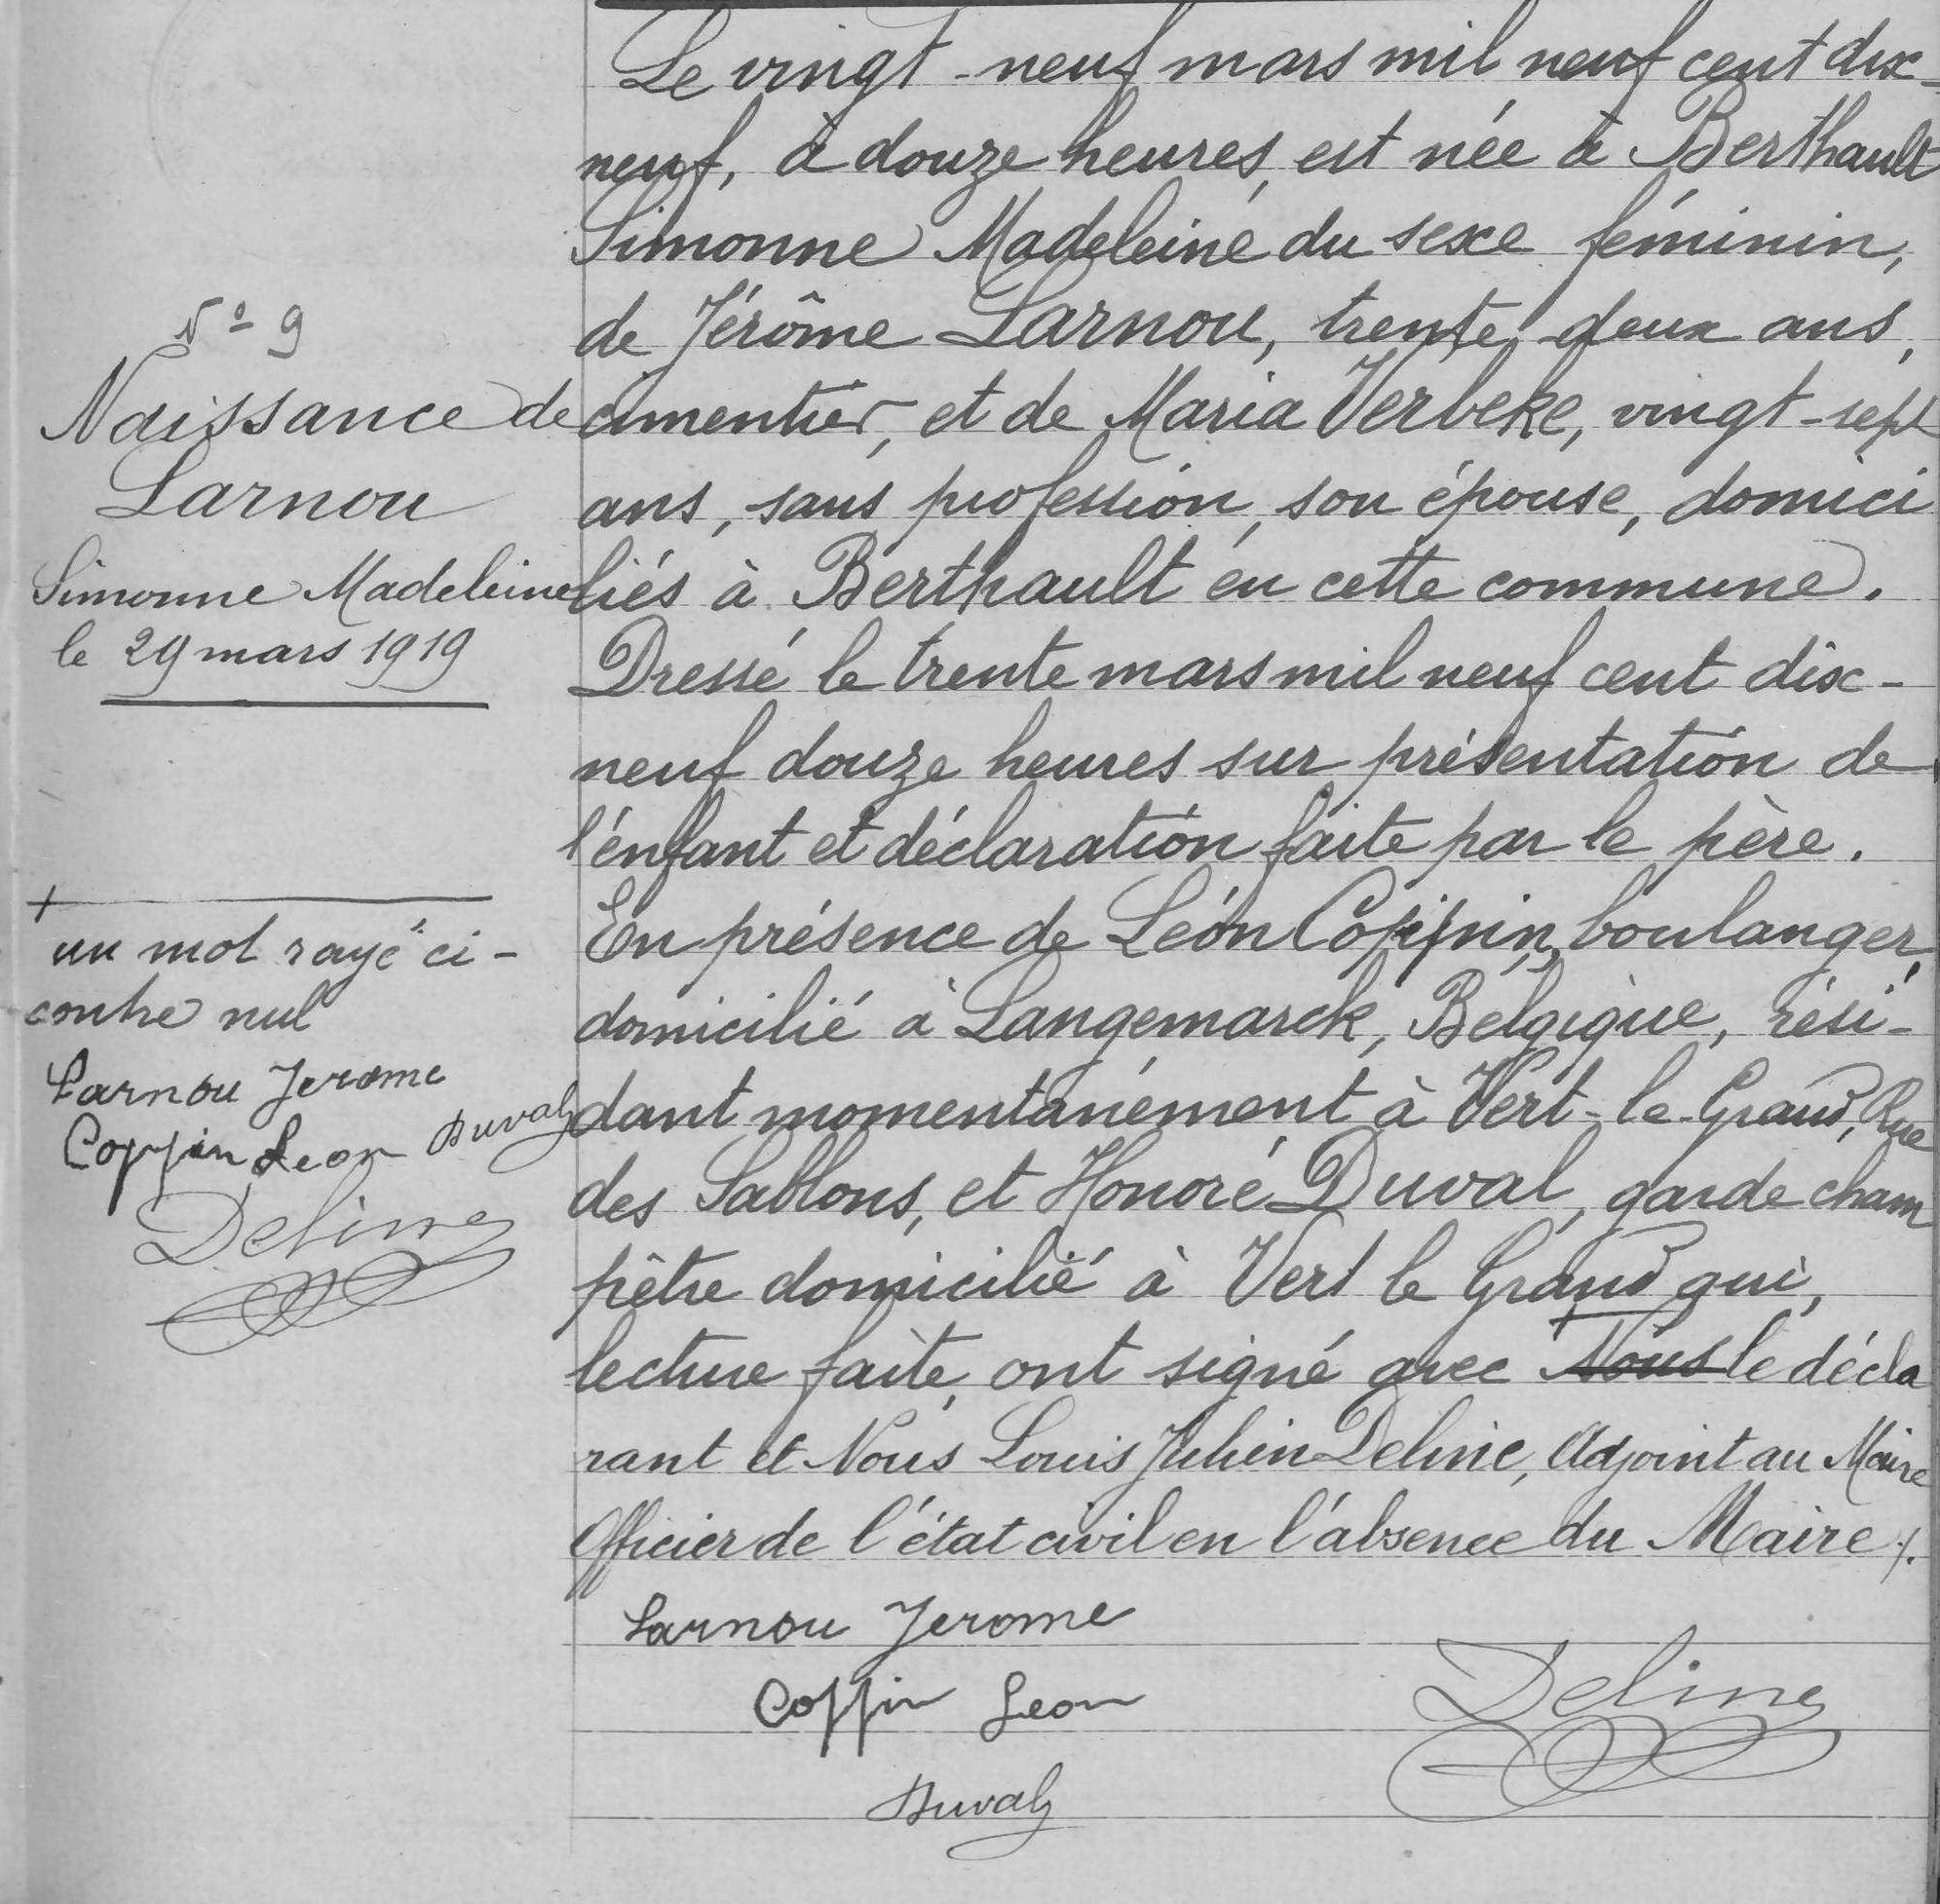 N° 9
Naissance de
Larnou
Simonne Madeleine
le 29 mars 1919
+
un mot rayé ci-
contre nul
Larnou Jerome
Coppin Leon Duval
Deline
Le vingt-neuf mars mil neuf cent dix-
neuf, à douze heures, est née à Berthault
Simonne Madeleine du sexe féminin,
de Jérôme Larnou, trente deux ans,
cimentier, et de Maria Verbeke, vingt-sept
ans, sans profession, son épouse, domici
liés à Berthault en cette commune.
Dressé le trente mars mil neuf cent dix-
neuf douze heures sur présentation de
l'enfant et déclaration faite par le père.
En présence de Léon Coppin, boulanger,
domicilié à Langemarck, Belgique, rési-
dant momentanément à Vert-le-Grand, Rue
des Sablons, et Honoré Duval, garde cham
pêtre domicilié à Vert le Grand qui,
lecture faite, ont signé avec + Nous le décla
rant et Nous Louis Julien Deline, Adjoint au Maire
Officier de l'état civil en l'absence du Maire ./.
Larnou Jerome
Coppin Leon
Deline
Duval